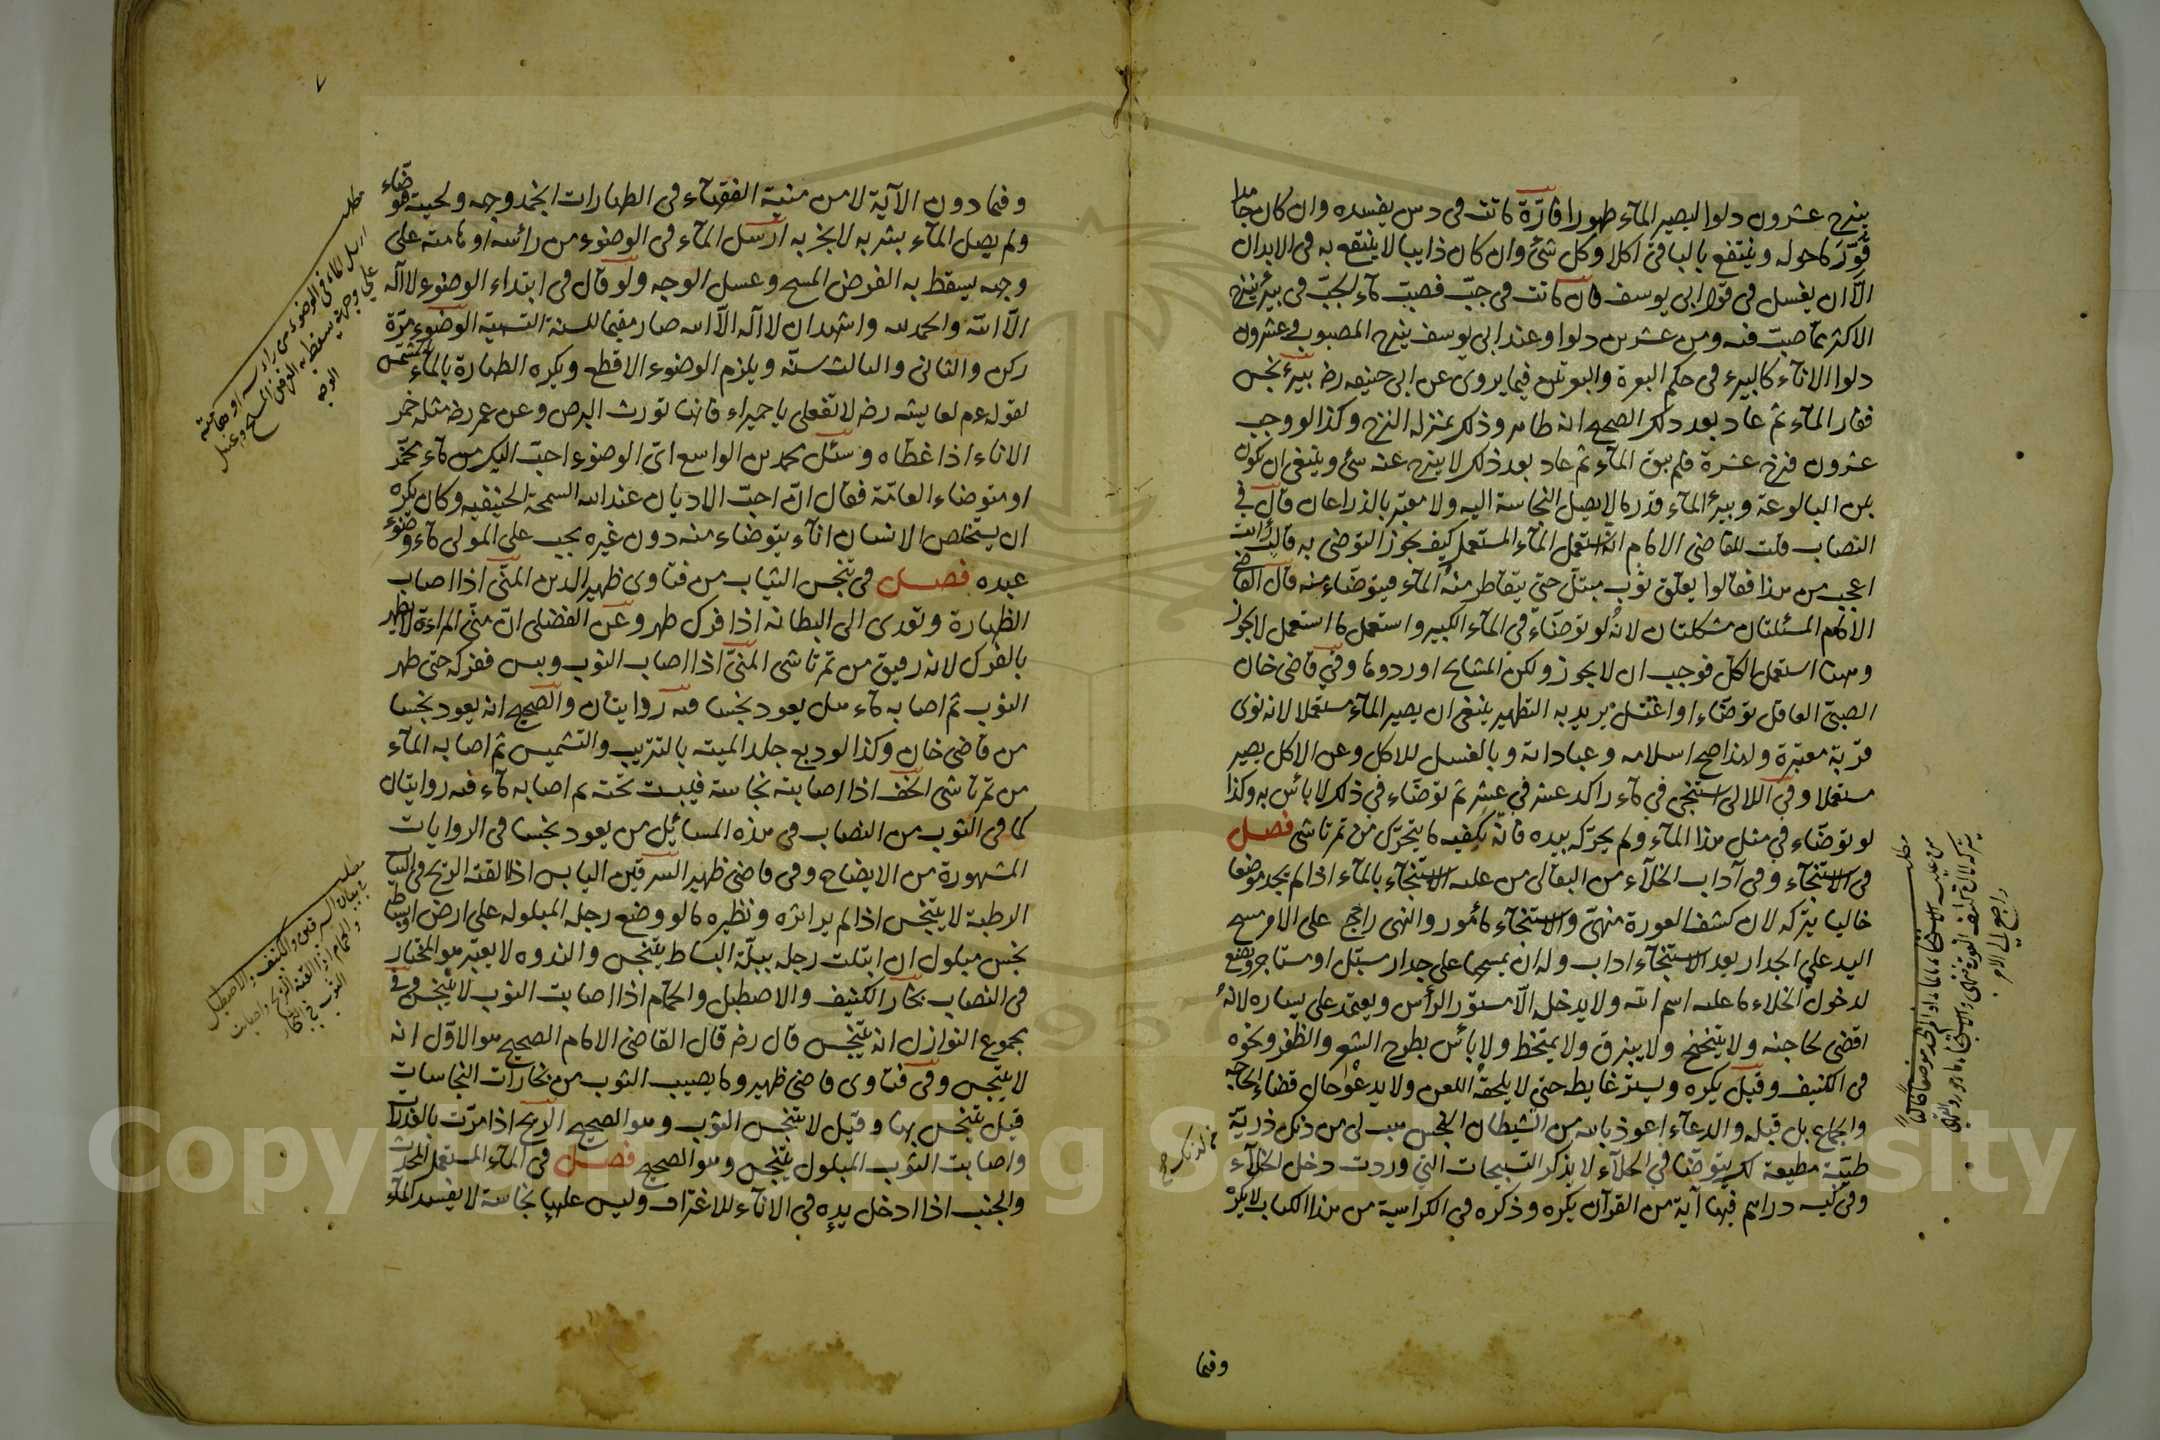 ينزح عشرون دلوا ليصير الماء طهورا فارة ماتت في دبس يفسده وان كان جامدا
قوّر ما حوله وينتفع بالباقي اكلا وكل شئ وان كان ذايبا لا ينتفع به في الابدان
الّا ان يغسل في قول ابي يوسف فان ماتت في جبّ فصبّ ماء الجبّ في بير ينزح
الاكثر مما صبّ فيه ومن عشرين دلوا وعند ابي يوسف ينزح المصبوب وعشرون
دلوا الاناء كالبير في حكم البعرة والبعرتين فيما يروى عن ابي حنيفه رض بير نجس
فغار الماء ثم عاد بعد ذلك الصحيح انه طاهر وذلك بمنزله النزح وكذا لو وجب
عشرون فنزح عشرة فلم يبق الماء ثم عاد بعد ذلك لا ينزح عنه شئ وينبغى ان يكون
بين البالوعة وبير الماء قدر ما لا يصل النجاسة اليه ولا معتبر بالذراعان قال في
النصاب قلت للقاضى الامام انه استعمل الماء المستعمل كيف يجوز التوضى به قال رأيت
اعجب من هذا فقالوا يعلق ثوب مبتل حتى يتقاطر منه الماء فيتوضاء منه قال القاضي
الامام المسئلتان مشكلتان لانه لو توضاء في الماء الكبير واستعمل ما استعمل لا يجوز
وههنا استعمل الكل فوجب ان لا يجوز ولكن المشايخ اوردوها وفي قاضى خان
الصبيّ العاقل توضاء او اغتسل يريد به التطهير ينبغى ان يصير الماء مستعملا لانه نوى
قربة معتبرة ولهذا صح اسلامه وعباداته وبالغسل للاكل وعن الاكل يصير
مستعملا وفي اللالى استنجى في ماء راكد عشر في عشر ثم توضاء في ذلك لا بأس به وكذا
لو توضاء في مثل هذا الماء ولم يحركه بيده فانه يكفيه ما يتحرك من تمرتاشى فصل
في الاستنجاء وفى آداب الخلاء من البقالى من عليه الاستنجاء بالماء اذا لم يجد موضعا
خاليا يتركه لان كشف العورة منهيّ والاستنجاء مأمور والنهى راجح على الامر مسح
اليد على الجدار بعد الاستنجاء اداب وله ان يمسحها على جدار مسبّل او مستاجر ويضع
لدخول الخلاء ما عليه اسم الله ولا يدخله الا مستور الرأس ويعتمد على يساره لانه
اقضى لحاجته ولا يتنحنح ولا يبزق ولا يمتخط ولا بأس بطرح الشعر والظفر ونحوه
في الكنيف وقيل يكره ويستر غايطه حتى لا يلحقه اللعن ولا يدعوا حال قضاء الحاجه
والجماع بل قبله والدعاء اعوذ بالله من الشيطان النجس هب لى من لدنك ذرية
طيبة مطيعة لك يتوضا في الخلاء لا يذكر التسبيحات التي وردت دخل الخلاء
وفي كيسه دراهم فيها آية من القرآن يكره وذكره في الكراسية من هذا الكتاب لا يكره
وفيما
مطلب
من عليه الاستنجاء بالماء اذا لم يجد موضعا خاليا
يتركه لان كشف العورة منهى والاستنجاء مامور والنهى
راجح على الامر
٧
وفيما دون الآية لا من منية الفقهاء في الطهارات انجمد وجهه ولحيته فتوضاء
ولم يصل الماء بشربه لا يجزيه ارسل الماء في الوضوء من رأسه او هامته على
وجهه يسقط به الفرض المسح وغسل الوجه ولو قال في ابتداء الوضوء لا اله
الا الله والحمد لله واشهد ان لا اله الا الله صار مقيما للسنة التسمية الوضوء مرّة
ركن والثانى والثالث سنّة ويلزم الوضوء الاقطع ويكره الطهارة بالماء المشمس
لقوله عم لعايشه رض لا تفعلى يا حميراء فانها تورث البرص وعن عمر رض مثله خمر
الاناء اذا غطاه وسئل محمد بن الواسع ايّ الوضوء احبّ اليك من ماء مخمّر
او متوضاء العامّة فقال انّ احبّ الاديان عند الله السمحة الحنيفيه وكان يكره
ان يستخلص الانسان اناء يتوضاء منه دون غيره يجب على المولى ماء وضوء
عبده فصل في تنجس الثياب من فتاوى ظهير الدين المنى اذا اصاب
الظهارة وتعدى الى البطانه اذا فرك طهر وعن الفضلى انّ منى المراءة لا يطهر
بالفرك لانه رقيق من تمرتاشى المنيّ اذا اصاب الثوب ويبس ففركه حتى طهر
الثوب ثم اصابه ماء هل يعود نجسا فيه روايتان والصحيح انه يعود نجسا
من قاضى خان وكذا لو دبع جلد الميته بالتتريب والتشميس ثم اصابه الماء
من تمرتاشى الخف اذا اصابته نجاسة فيبست تحته ثم اصابه ماء فيه روايتان
كما في الثوب من النصاب في هذه المسائل من يعود نجسا في الروايات
المشهورة من الايضاح وفي قاضى ظهير السرقين اليابس اذا القته الريح في الثياب
الرطبة لا يتنجس اذا لم ير اثره ونظيره ما لو وضع رجله المبلوله على ارض او بساط
نجس مبلول ان ابتلت رجله ببلّة البساط يتنجس والندوه لا يعتبر هو المختار
في النصاب بخار الكنيف والاصطبل والحمام اذا اصابت الثوب لا يتنجس وفي
مجموع النوازل انه يتنجس قال رض قال القاضى الامام الصحيح هو الاوّل انه
لا يتنجس وفي فتاوى قاضى ظهير وما يصيب الثوب من بخارات النجاسات
قيل تنجس بها وقيل لا يتنجس الثوب وهو الصحيح الريح اذا مرّت بالعذرات
واصابت الثوب المبلول يتنجس وهو الصحيح فصل في الماء المستعمل المحدث
والجنب اذا ادخل يده في الاناء للاغتراف وليس عليها نجاسة لا يفسد الماء
مطلب
ارسل الماء في الوضوء من راسه او هامته
على وجهه يسقط به الفرض المسح وغسل
الوجه
مطلب
في بيان السرقين والكنيف والاصطبل
والحمام اذا القته الريح واصابت
الثوب في البخار
Copyright © King Saud University
1957